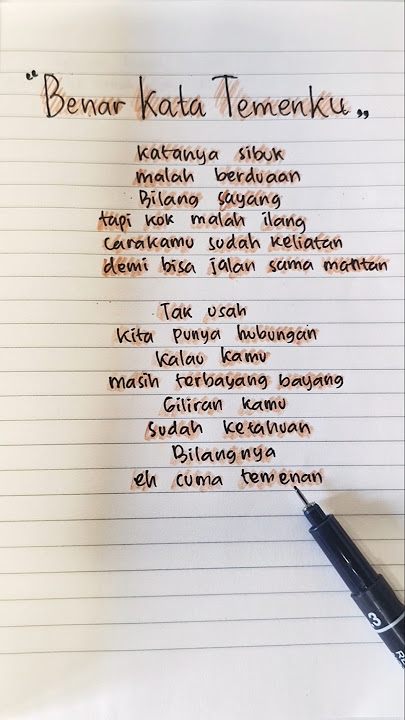 “Benar Kata Temenku„
Katanya sibuk
malah berduaan
Bilang sayang
tapi kok malah ilang
carakamu sudah keliatan
demi bisa jalan sama mantan
Tak usah
Kita punya hubungan
Kalau kamu
masih terbayang bayang
Giliran kamu
sudah ketahuan
Bilangnya
eh cuma temenan
3